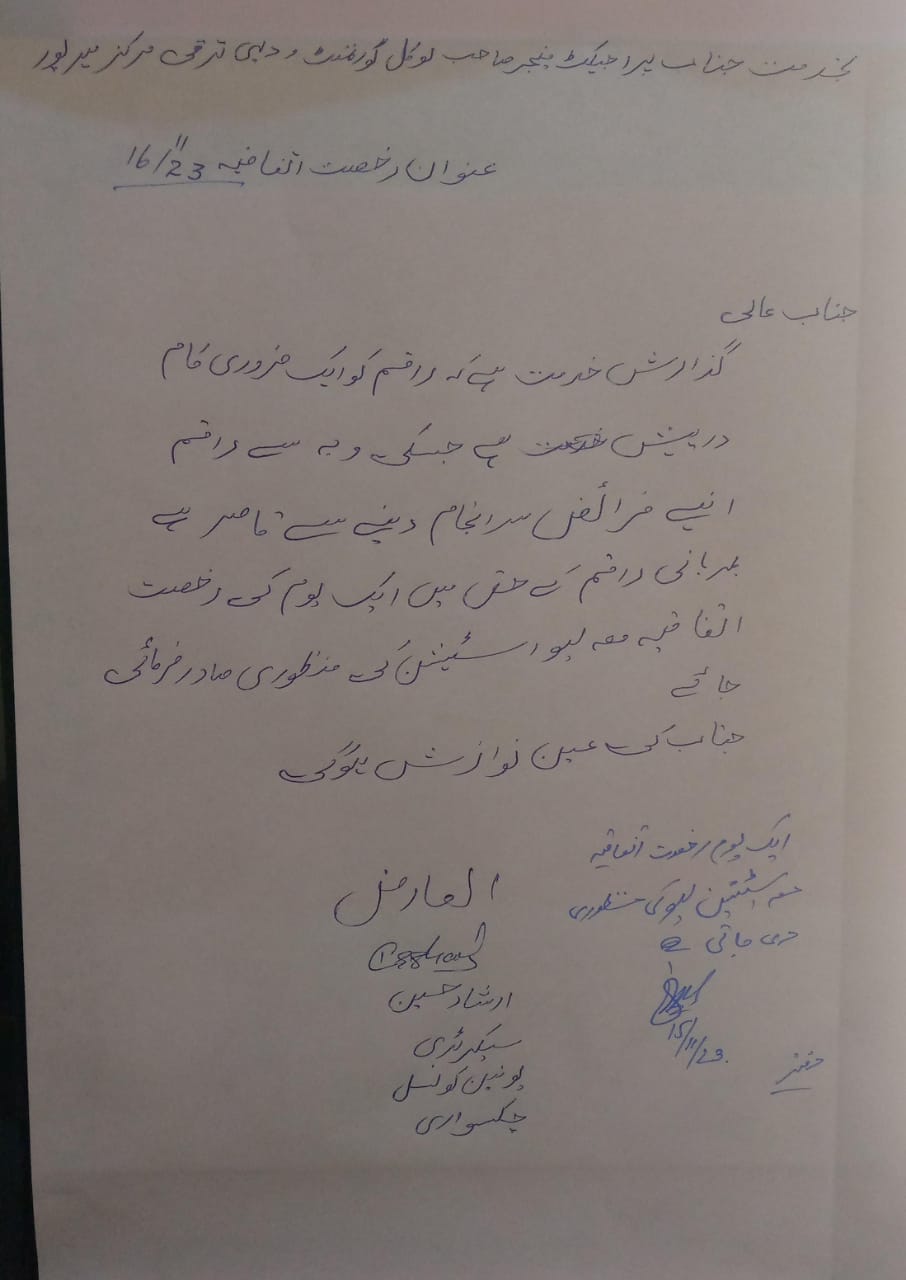 بخدمت جناب پراجیکٹ منیجر صاحب لوکل گورنمنٹ و دیہی ترقی مرکز میرپور
عنوان رخصت اتفاقیہ 16/11/23
جناب عالی
گذارش خدمت ہے کہ راقم کو ایک ضروری کام
درپیش ہے جسکی وجہ سے راقم
اپنے فرائض سرانجام دینے سے قاصر ہے
بمہربانی راقم کے حق میں ایک یوم کی رخصت
اتفاقیہ معہ لیو اسٹیشن کی منظوری صادر فرمائی
جائے
جناب کی عین نوازش ہوگی
العارض
ارشاد حسین
سیکرٹری
یونین کونسل
چکسواری
ایک یوم رخصت اتفاقیہ
معہ اسٹیشن لیو کی منظوری
دی جاتی ہے
15/11/23
دفتر